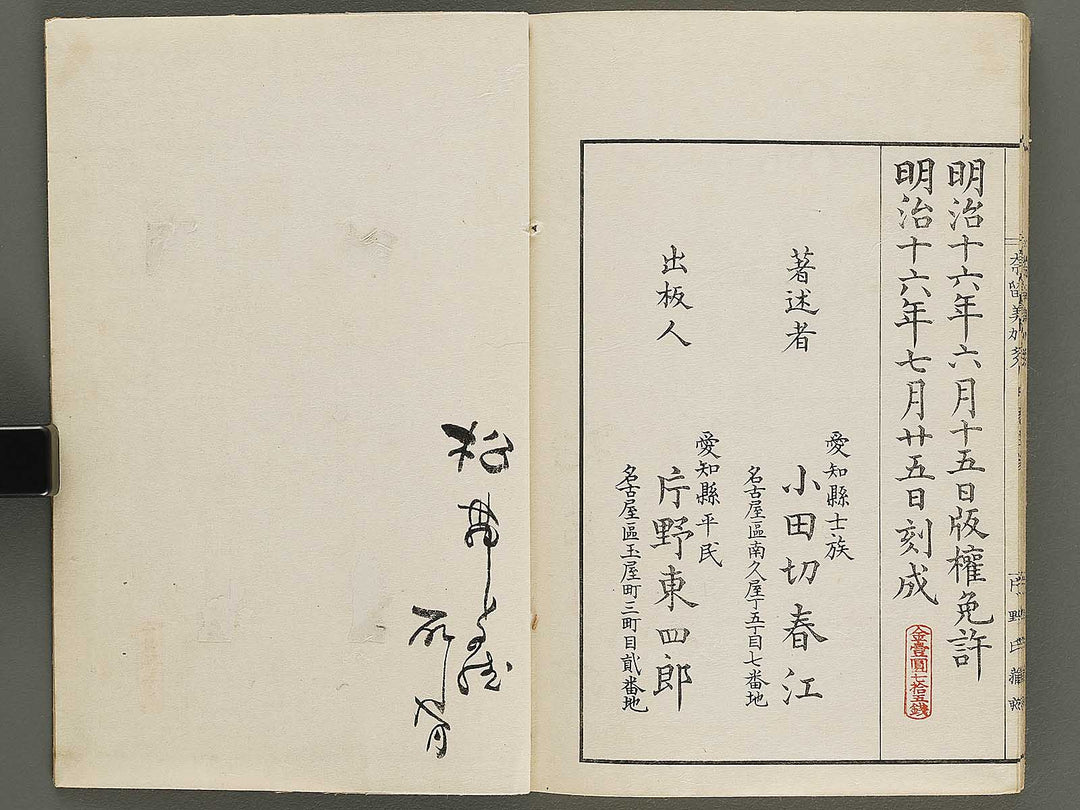 明治十六年六月十五日版權免許
明治十六年七月廿五日刻成
金壹圓七拾五錢
著述者
愛知縣士族
小田切春江
名古屋區南久屋丁五丁目七番地
出板人
愛知縣平民
片野東四郎
名古屋區玉屋町三町目貳番地
松
所有